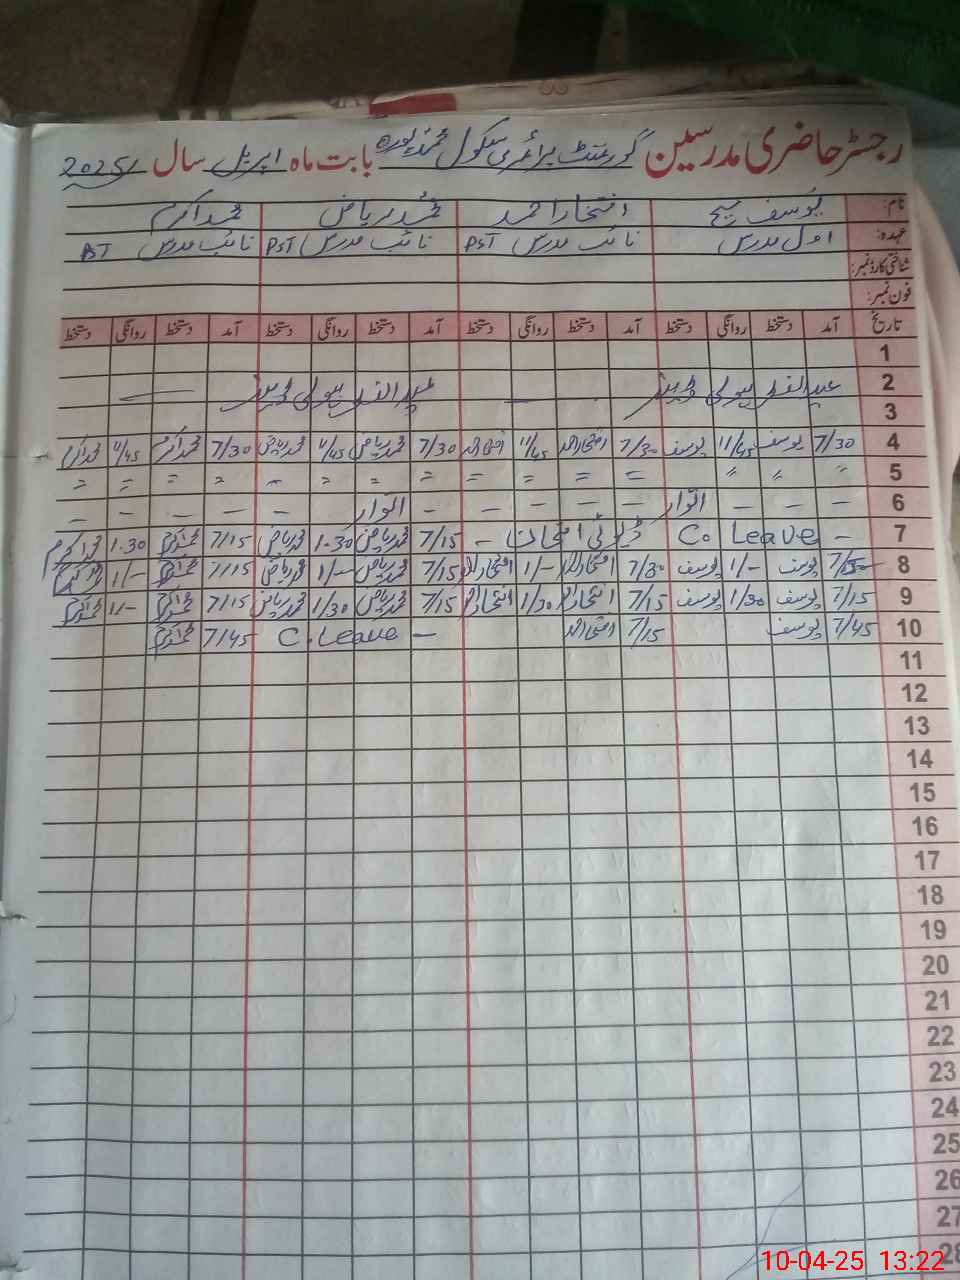 رجسٹر حاضری مدرسین گورنمنٹ پرائمری سکول محمد پورہ بابت ماہ اپریل سال 2025
نام: یوسف مسیح افتخار احمد محمد ریاض محمد اکرم
عہدہ: اول مدرس نائب مدرس PST نائب مدرس PST نائب مدرس PST
شناختی کارڈ نمبر:
فون نمبر:
تاریخ آمد دستخط روانگی دستخط آمد دستخط روانگی دستخط آمد دستخط روانگی دستخط آمد دستخط روانگی دستخط
1
2 عید الفطر ہولی ڈیز — عید الفطر ہولی ڈیز —
3
4 7/30 یوسف 11/45 یوسف 7/30 افتخار احمد 11/45 افتخار احمد 7/30 محمد ریاض 11/45 محمد ریاض 7/30 محمد اکرم 11/45 محمد اکرم
5 〃 〃 〃 = = = = = = = = = = =
6 – – – اتوار – – – – – اتوار – – – – –
7 – C. Leave ڈیوٹی امتحان – 7/15 محمد ریاض 1.30 محمد ریاض 7/15 محمد اکرم 1.30 محمد اکرم
8 یوسف 1/- یوسف 7/30 افتخار احمد 1/- افتخار احمد 7/15 محمد ریاض 1/- محمد ریاض 7/15 محمد اکرم 1/- محمد اکرم
9 7/15 یوسف 1/30 یوسف 7/15 افتخار احمد 1/30 افتخار احمد 7/15 محمد ریاض 1/30 محمد ریاض 7/15 محمد اکرم 1/- محمد اکرم
10 7/45 یوسف 7/15 افتخار احمد – C. Leave 7/45 محمد اکرم
11
12
13
14
15
16
17
18
19
20
21
22
23
24
25
26
27
28
10-04-25 13:22